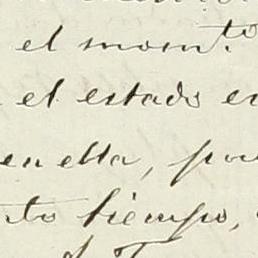 el mom.to
el estado en
en ella, por
to tiempo,